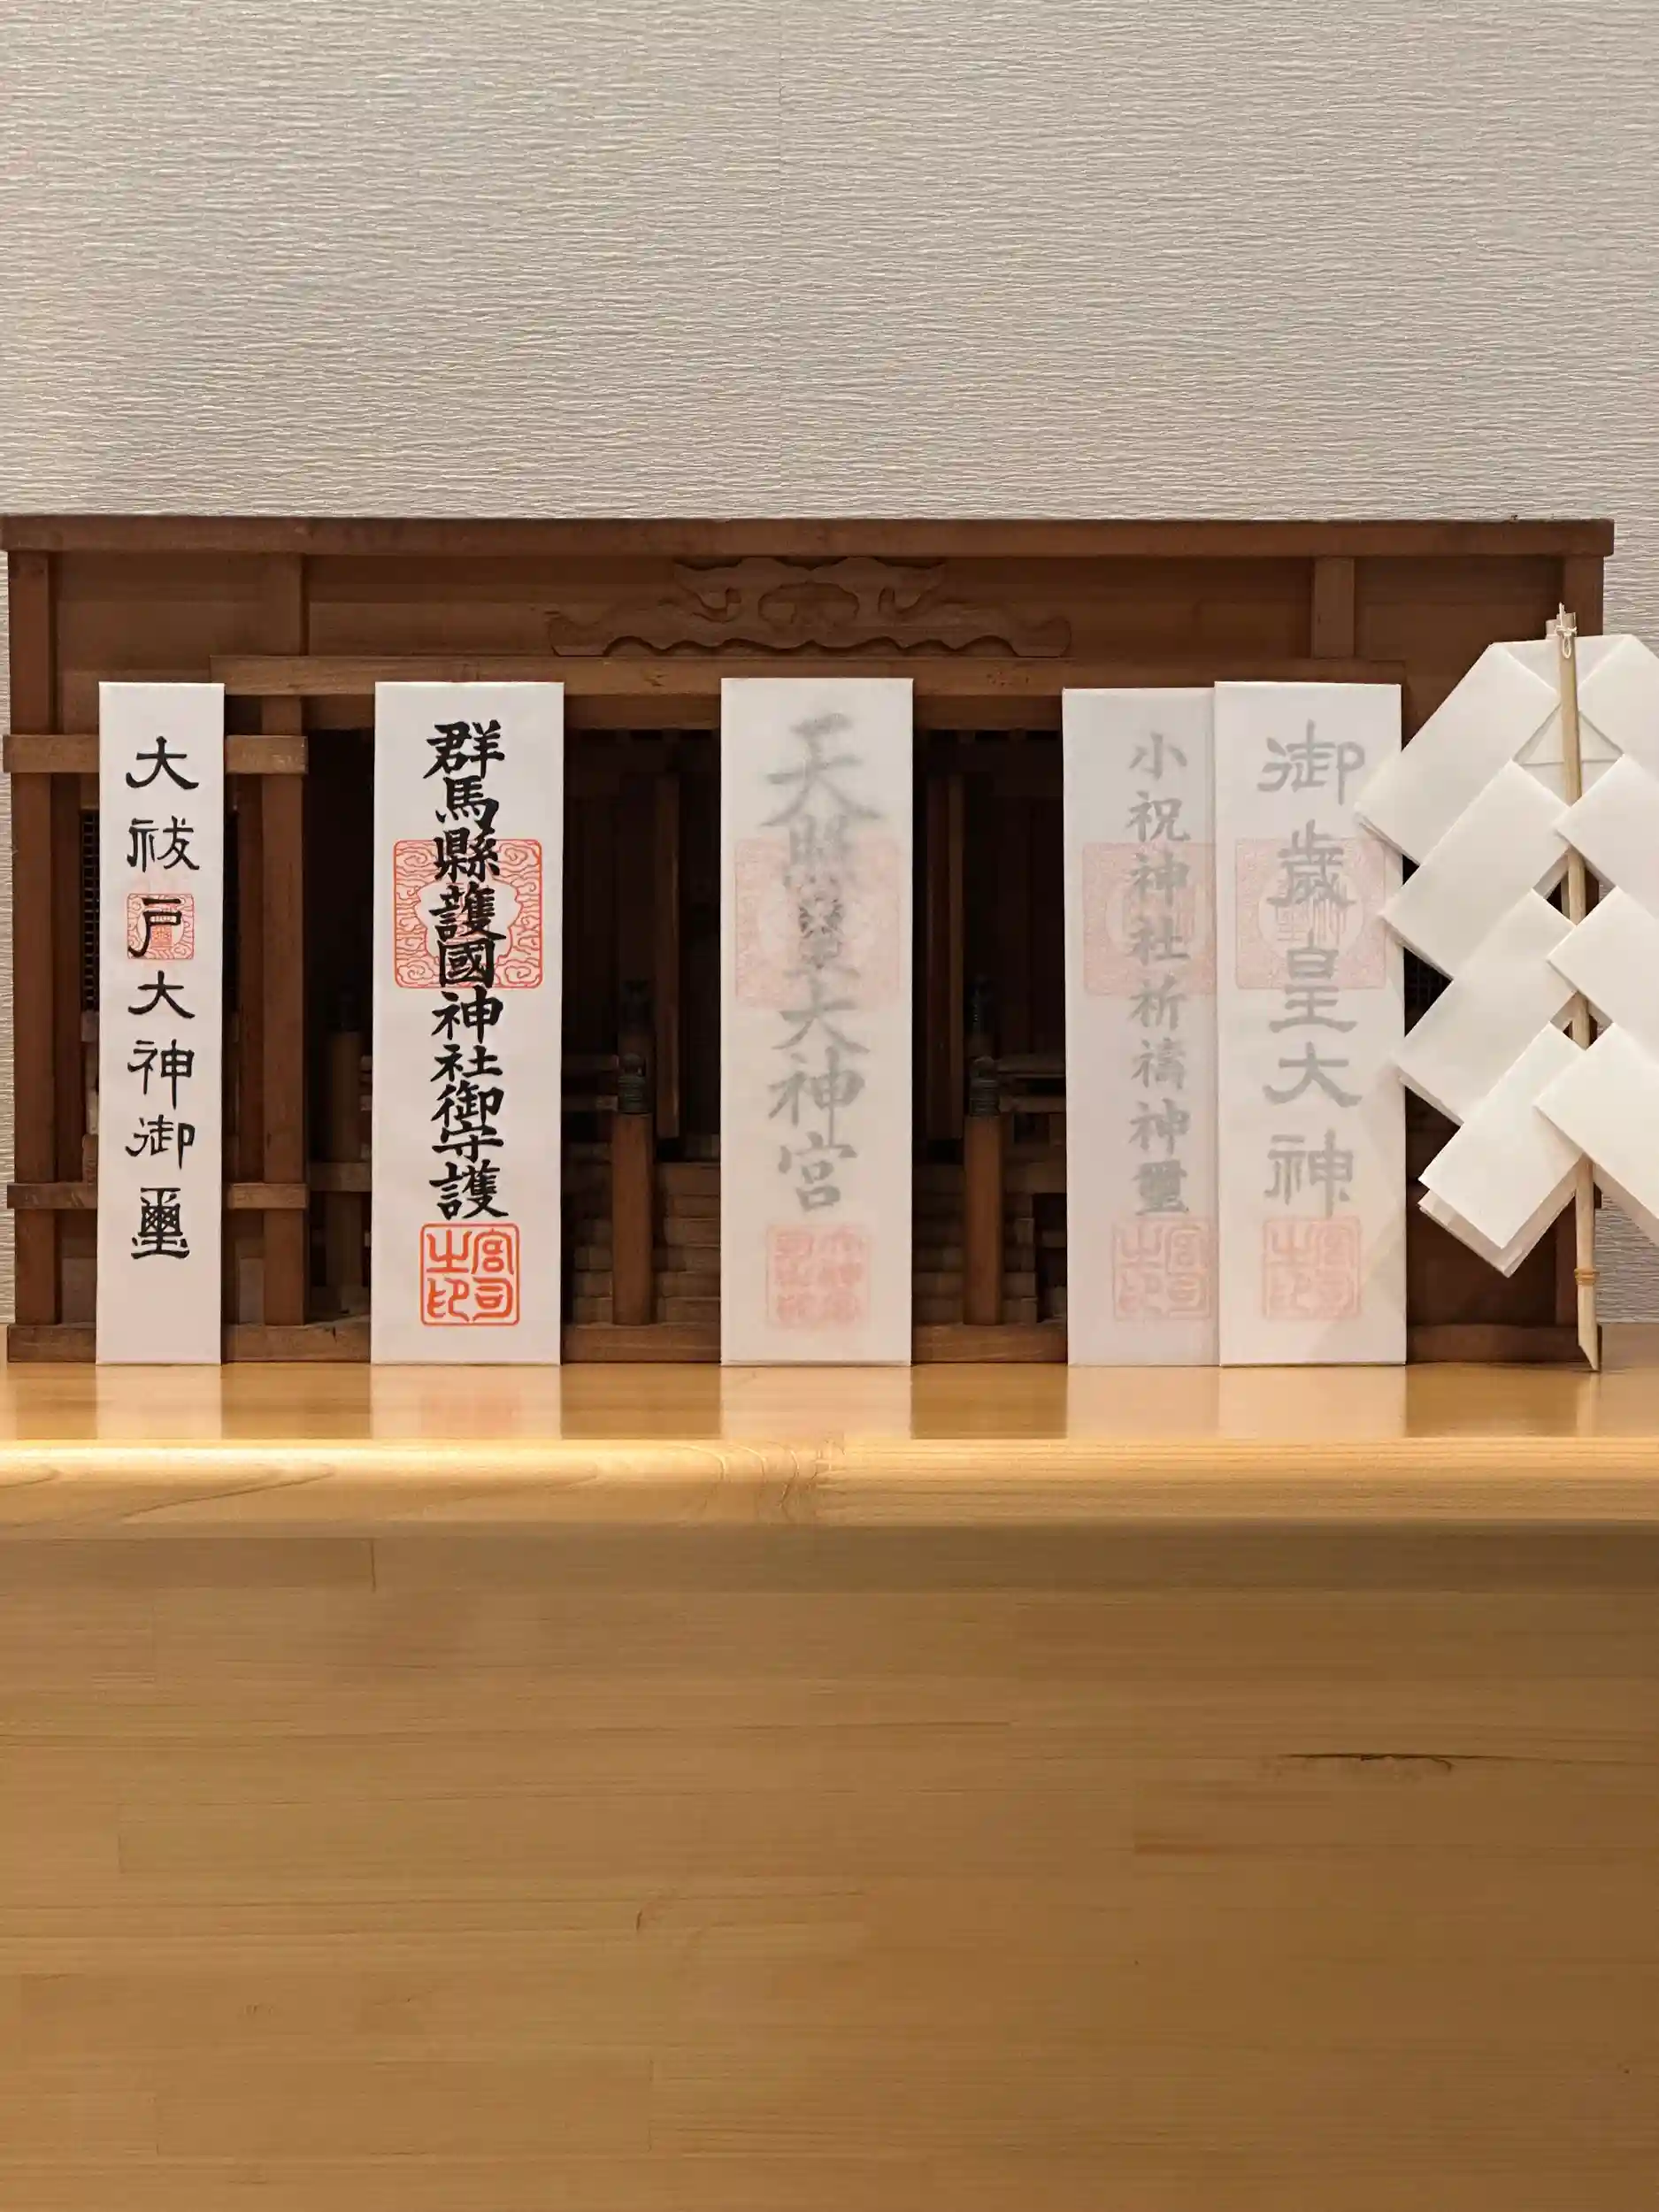 大祓戸大神御璽
群馬縣護國神社御守護
宮司之印
天照皇大神宮
小祝神社祈禱神璽
宮司之印
御歳皇大神
宮司之印